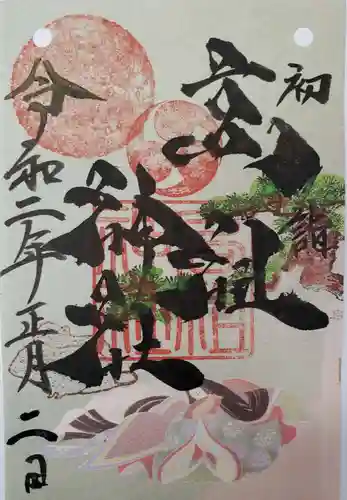 初詣
高祖神社
令和二年正月二日